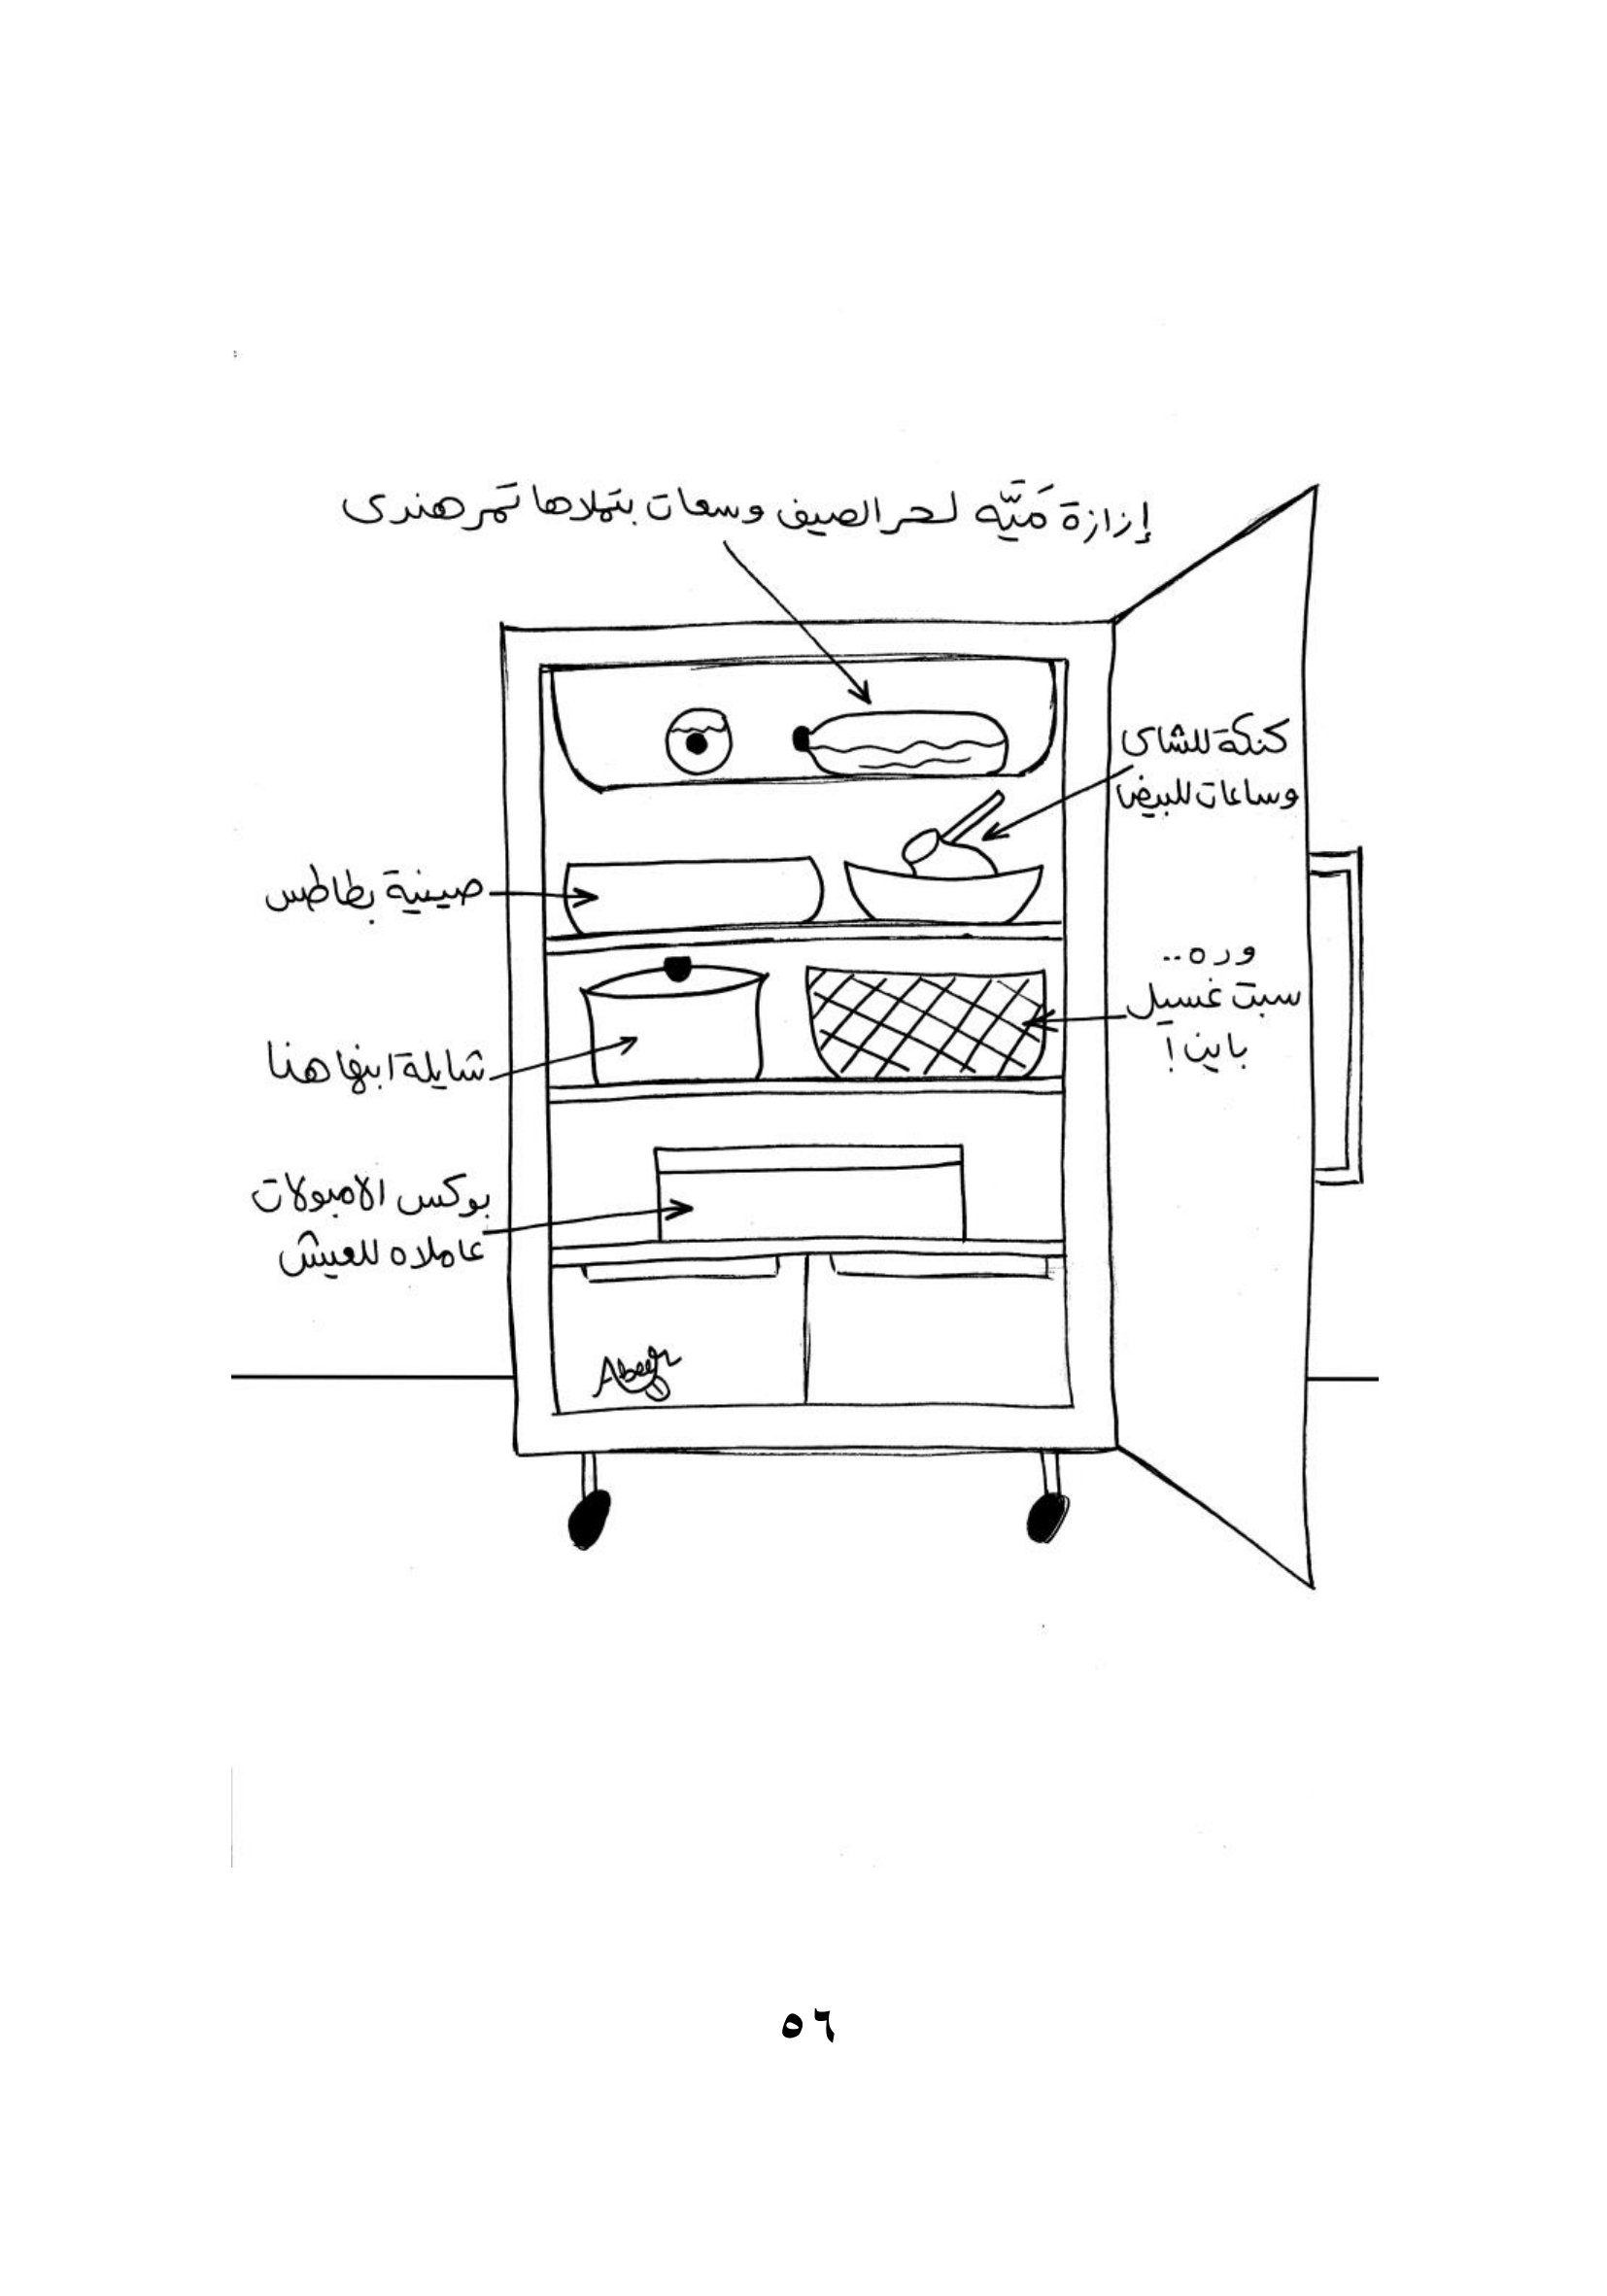 إزازة مَيَّه لحر الصيف وسعات بتملاها تمر هندى
كنكة للشاى
وساعات للبيض
صينية بطاطس
وده..
سبت غسيل
باين!
شايلة ابنها هنا
بوكس الامبولات
عاملاه للعيش
Abeer
٥٦